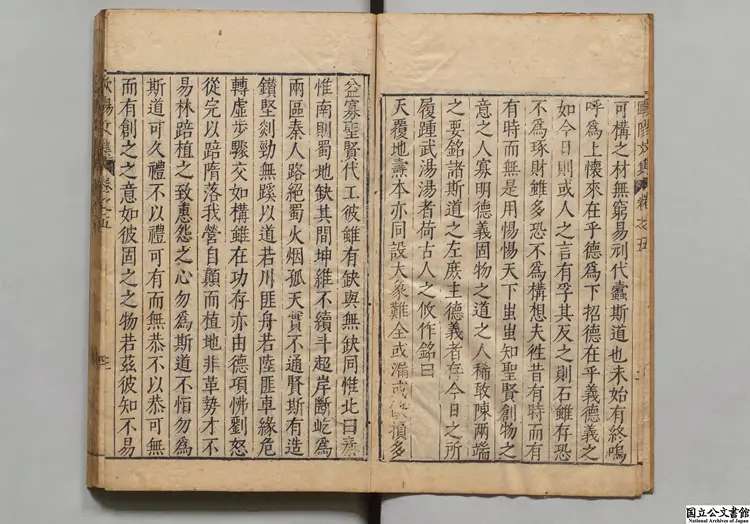 歐陽文集 卷之五
可構之材無窮易刋代蠹斯道也未始有終嗚
呼爲上懷來在乎德爲下招德在乎義德義之
如今日則或人之言有孚其反之則石雖存恐
不爲琢財雖多恐不爲構想夫徃昔有時而有
有時而無是用惕惕天下蚩蚩知聖賢創物之
意之人寡明德義固物之道之人稀敢陳兩端
之要銘諸斯道之左庶主德義者存今日之所
履踵武湯湯者荷古人之攸作銘曰
天覆地燾本亦同設大象難全或漏或缺損多
益寡聖賢代工彼雖有缺與無缺同惟北曰秦
惟南則蜀地缺其間坤維不續斗超岸斷屹爲
兩區秦人路絕蜀火烟孤天實不通賢斯有造
鑽堅剡勁無蹊以道若川匪舟若陸匪車緣危
轉虛步驟交如構雖在功存亦由德項怫劉怒
從完以踣隋落我營自顛而植地非革勢才不
易林踣植之致惠怨之心勿爲斯道不恒勿爲
斯道可久禮不以禮可有而無恭不以恭可無
而有創之之意如彼固之之物若茲彼知不易
歐陽文集 卷之五
国立公文書館
National Archives of Japan